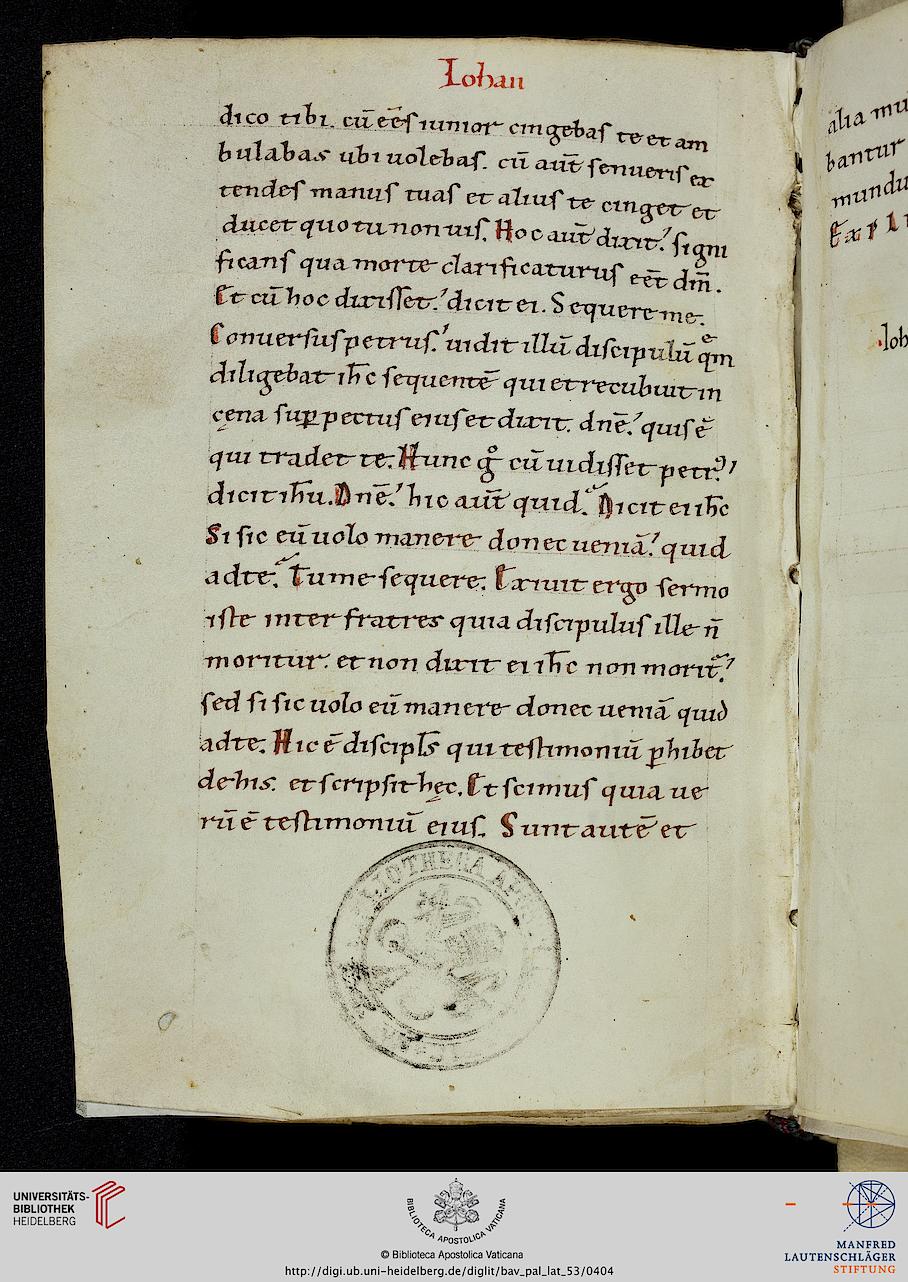 Iohan
dico tibi. cū eēs iunior cingebas te et am
bulabas ubi uolebas. cū aūt senueris ex
tendes manus tuas et alius te cinget et
ducet quo tu non uis. Hoc aūt dixit. signi
ficans qua morte clarificaturus eēt dm̄.
Et cū hoc dixisset. dicit ei. Sequere me.
Conuersus petrus. uidit illū discipulū quem
diligebat ih̄c sequentē qui et recubuit in
cęna sup̱ pectus eius et dixit. dnē. quis ē
qui tradet te. Hunc gͦ cū uidisset petrꝰ.
dicit ih̄u. Dnē. hic aūt quid. Dicit ei ih̄c
Si sic eū uolo manere donec ueniā. quid
adte. Tu me sequere. Exiuit ergo sermo
iste inter fratres quia discipulus ille n̄
moritur. et non dixit ei ih̄c non morit̄.
sed si sic uolo eū manere donec ueniā quid
adte. Hic ē discipl̄s qui testimoniū ꝑhibet
de his. et scripsit hęc. Et scimus quia ue
rū ē testimoniū eius. Sunt autē et
alia mu
bantur
mundu
Expli
Ioh
UNIVERSITÄTS-
BIBLIOTHEK
HEIDELBERG
BIBLIOTECA APOSTOLICA VATICANA
© Biblioteca Apostolica Vaticana
http://digi.ub.uni-heidelberg.de/diglit/bav_pal_lat_53/0404
MANFRED
LAUTENSCHLÄGER
STIFTUNG